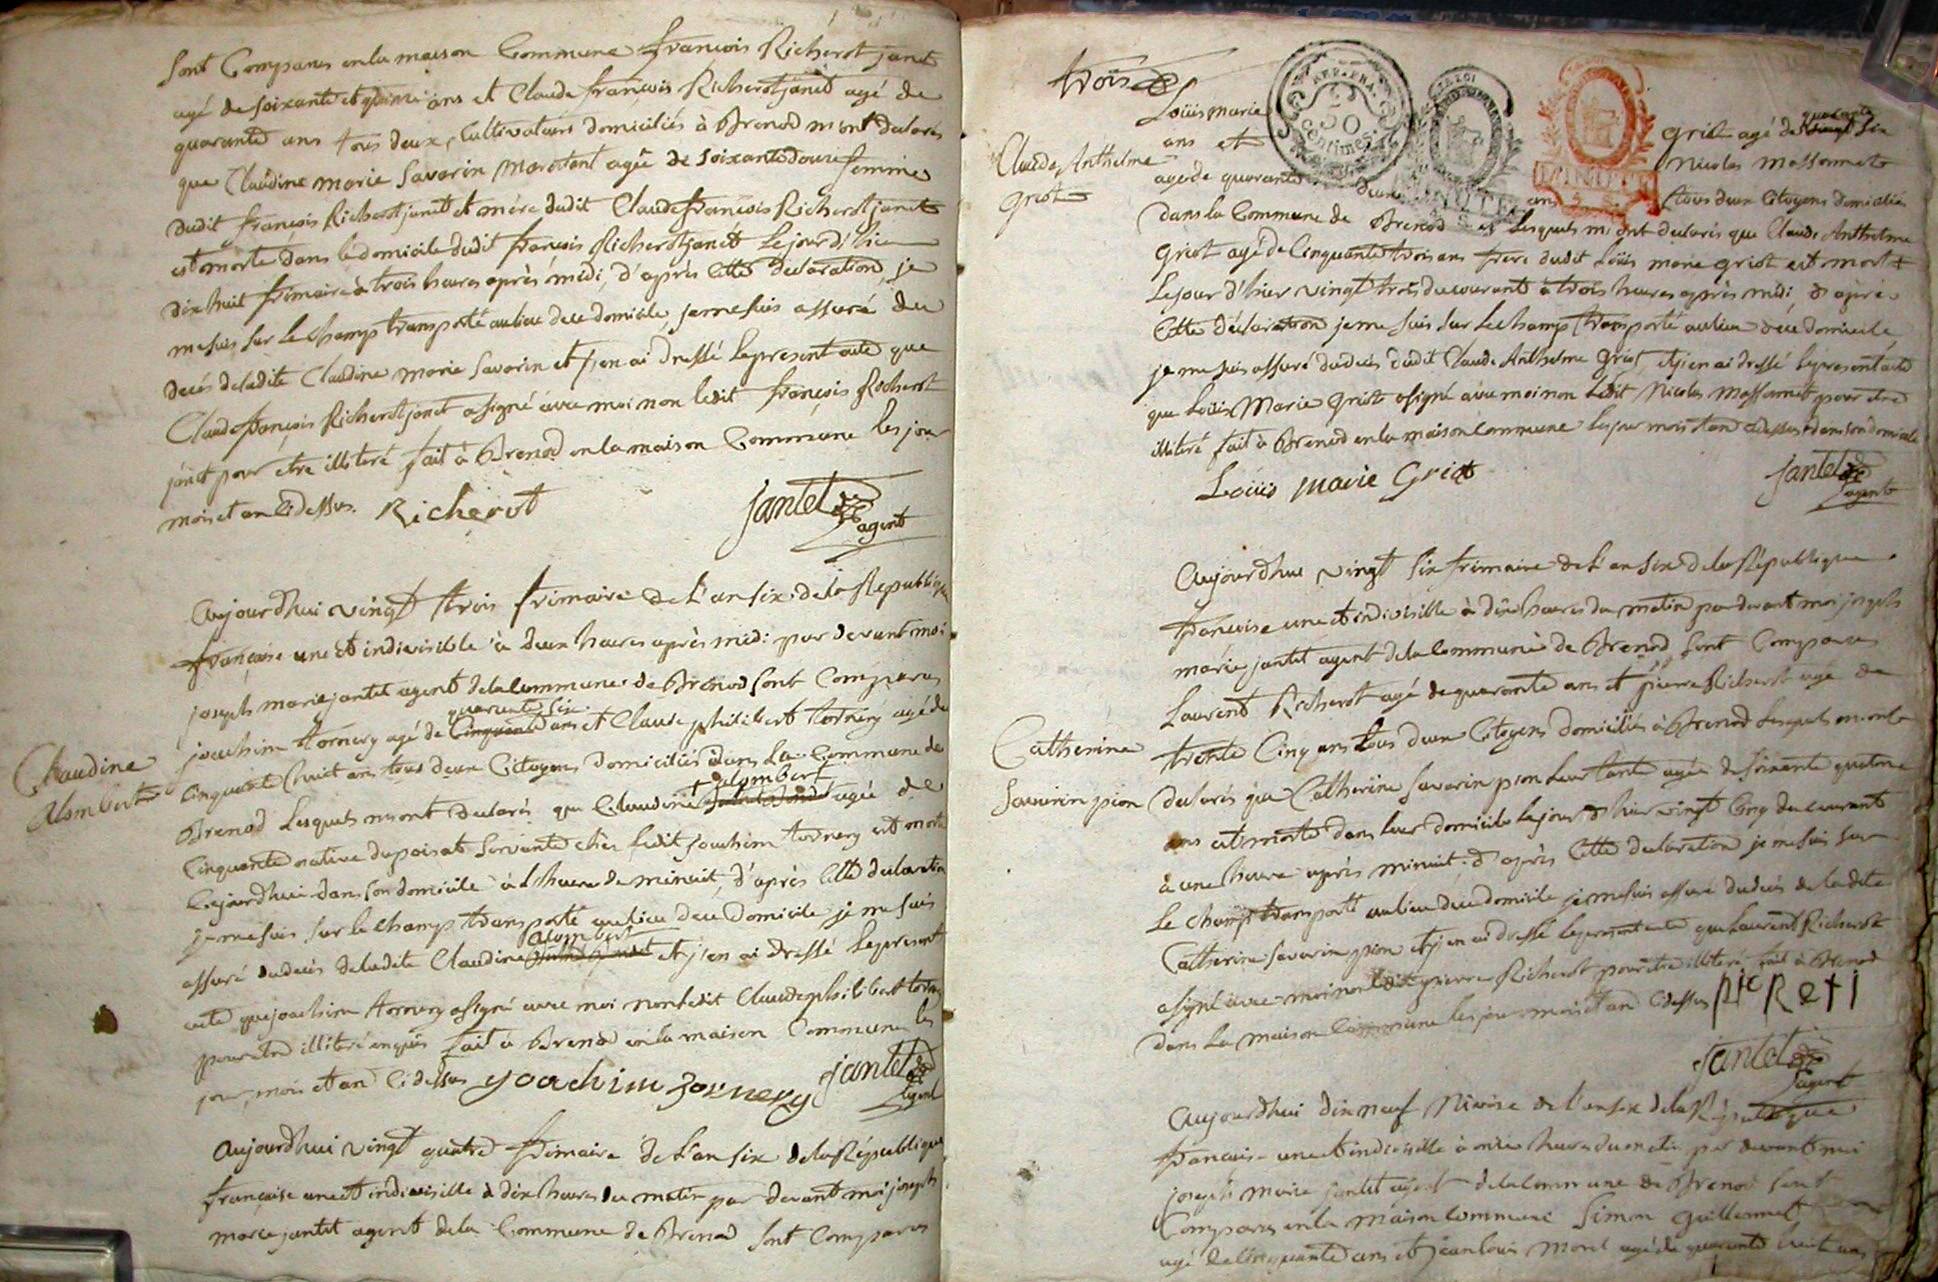 sont Comparus en la maison Commune françois Richerot janet
agé de soixante et quinze ans et Claude françois Richerot janet agé de
quarante ans tous deux Cultivateurs domiciliés à Brenod m'ont declarés
que Claudine marie Savarin marotant agée de soixante douze femme
dudit françois Richerot janet et mére dudit Claude françois Richerot janet
est morte dans le domicile dudit françois Richerot janet le jour d'hier
dix huit frimaire à trois heures après midi, d'après Cette declaration, je
me suis sur le champ transporté au lieu de ce domicile, je me suis assuré du
decés de ladite Claudine marie Savarin et j'en ai dressé le present acte que
Claude françois Richerot janet a signé avec moi non ledit françois Richerot
janet pour etre illiteré fait à Brenod en la maison Commune les jour
mois et an Cidessus. Richerot
jantet
agent
Aujourdhui vingt trois frimaire de L'an six de la Republique
française une et indivisible à deux heures après midi par devant moi
joseph marie jantet agent de la Commune de Brenod sont Comparus
quarante six
joachim tornery agé de Cinquante ans et Claude philibert tornery agé de
Cinquante huit ans tous deux Citoyens domiciliés dans La Commune de
Claudine
Alombert
+ alombert
Brenod Lesquels m'ont declarés que Claudine agée de
Cinquante native du poisat servante chés ledit joachim tornery est morte
Cejourdhui dans son domicile à L'heure de minuit, d'après Cette declaration
je me suis sur le champ transporté au lieu de ce domicile je me suis
alombert
assuré du decés de ladite Claudine et j'en ai dressé le present
acte que joachim tornery a signé avec moi non ledit Claude philibert tornery
pour etre illiteré enquis fait à Brenod en la maison Commune les
jour, mois et an Cidessus joachim Tornery jantet
agent
Aujourdhui vingt quatre frimaire de L'an six de la République
française une et indivisible à dix heures du matin par devant moi joseph
marie jantet agent de la Commune de Brenod sont Comparus
trois
REP. FRA.
50
centimes
MINUTE
Loüis marie griot agé de quarante six
ans et Nicolas massonnet
Claude Anthelme
griot
agé de quarante deux ans tous deux Citoyens domiciliés
dans la Commune de Brenod Lesquels m'ont declarés que Claude Anthelme
griot agé de Cinquante trois ans frere dudit Loüis marie griot est mort
Le jour d'hier vingt trois du courant à trois heures après midi, d'après
Cette déclaration je me suis sur le champ transporté au lieu de ce domicile,
je me suis assuré du decés dudit Claude Anthelme griot, et j'en ai dressé le present acte
que Loüis Marie griot a signé avec moi non Ledit Nicolas massonnet pour etre
illiteré fait à Brenod en la maison Commune les jour mois et an Cidessus dans son domicile
Loüis marie Griot
jantet
agent
Aujourdhui vingt six frimaire de L'an six de la République
française une et indivisible à dix heures du matin par devant moi joseph
marie jantet agent de la Commune de Brenod sont Comparus
Laurent Richerot agé de quarante ans et pierre Richerot agé de
trente Cinq ans tous deux Citoyens domiciliés à Brenod Lesquels m'ont
Catherine
Savarin pion
declarés que Catherine Savarin pion Leur tante agée de soixante quatorze
ans est morte dans leur domicile le jour d'hier vingt Cinq du courant
à une heure après minuit, d'après Cette declaration je me suis sur
le champ transporté au lieu de ce domicile je me suis assuré du decés de ladite
Catherine Savarin pion et j'en ai dressé le present acte que Laurent Richerot
a signé avec moi non ledit pierre Richerot pour etre illiteré fait à Brenod
dans La maison Commune les jour mois et an Cidessus
jantet
agent
Aujourdhui dix neuf Nivôse de L'an six de la République
française une et indivisible à onze heures du matin par devant moi
joseph marie jantet agent de la Commune de Brenod sont
Comparus en la maison Commune Simon Guillermet
agé de Cinquante ans et jean louis Morel agé de quarante huit ans